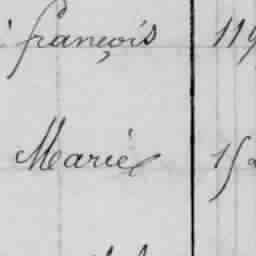 françois 119
Marie 15